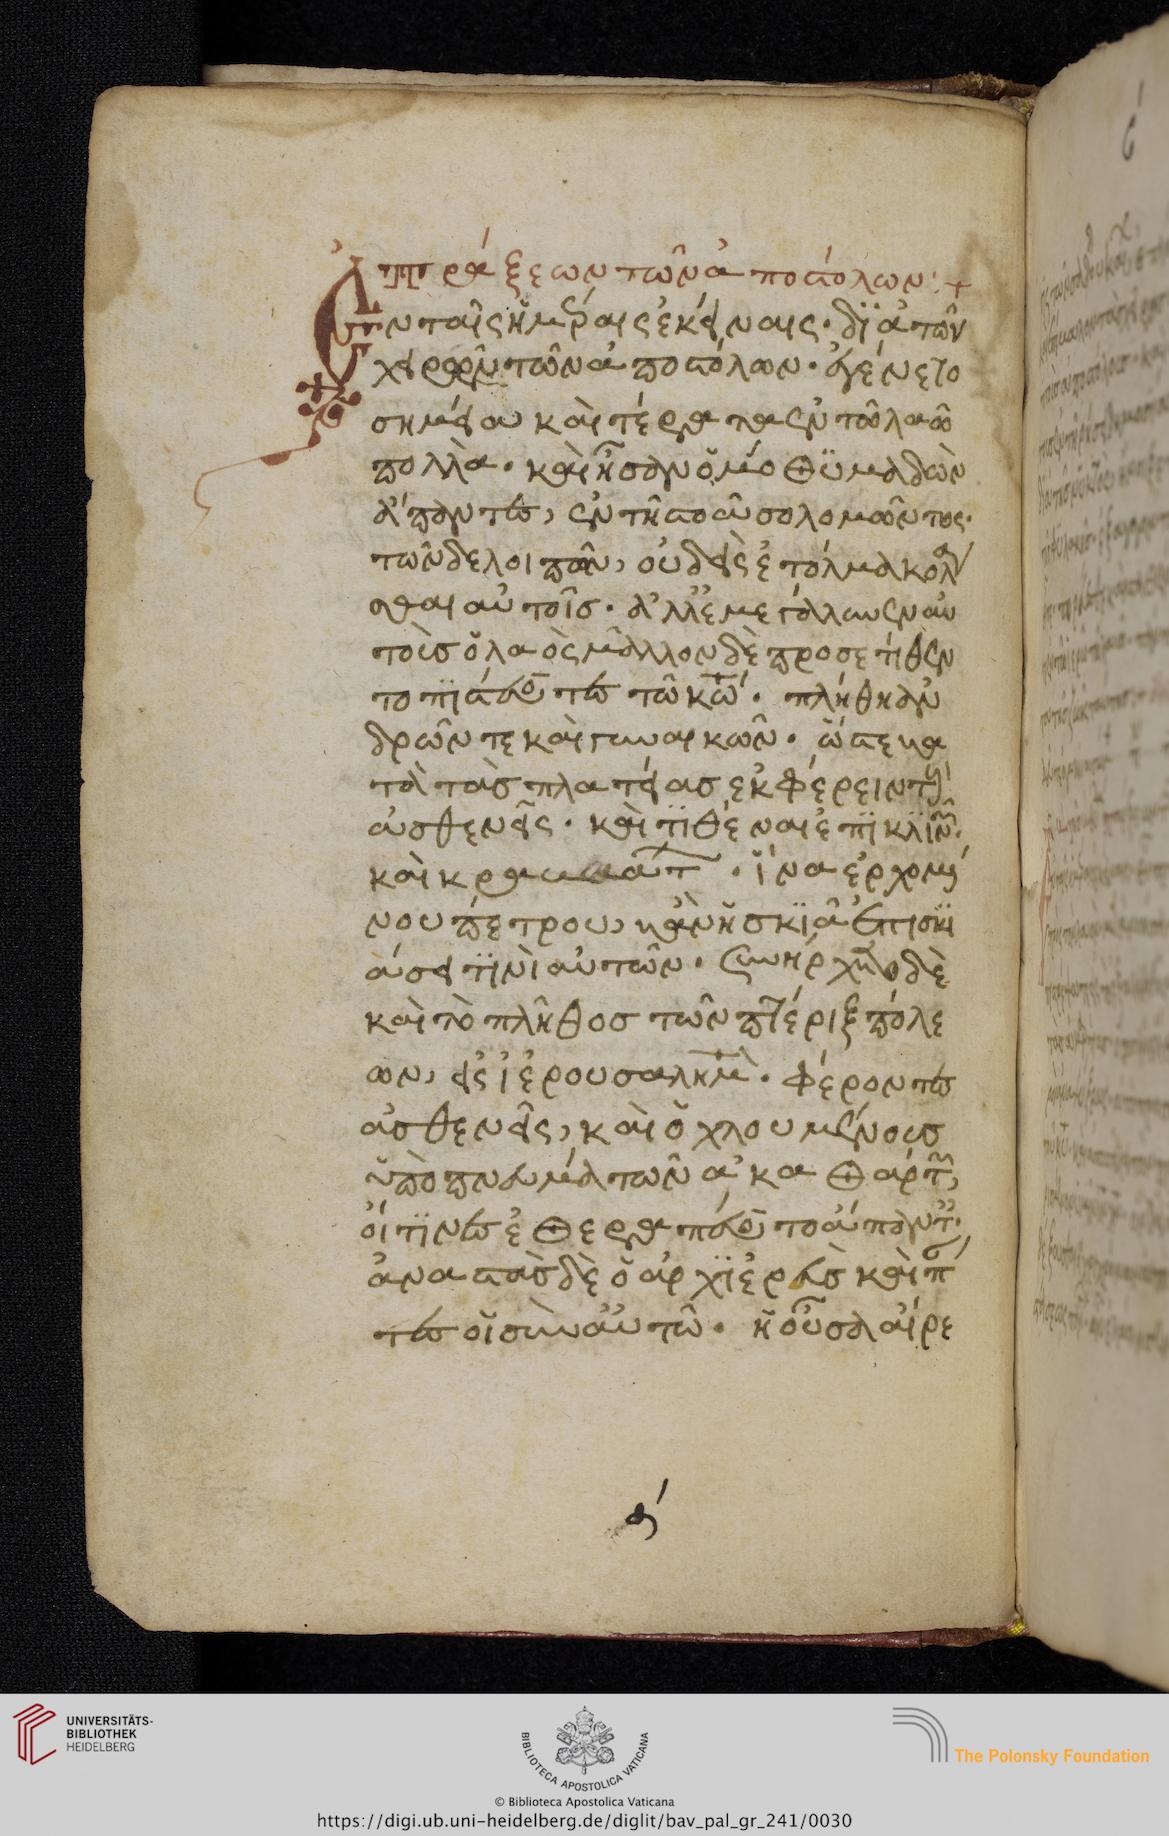 Πράξεων τῶν ἀποστόλων +
Ἐν ταῖς ἡμέραις ἐκείναις· διὰ τῶν
χειρῶν τῶν ἀποστόλων· ἐγένετο
σημεῖα καὶ τέρατα ἐν τῶ λαῶ
πολλὰ· καὶ ἦσαν ὁμοθυμαδὼν
ἅπαντες, ἐν τῆ στοᾶ σολομῶντος·
τῶν δὲ λοιπῶν, οὐδεὶς ἐτόλμα κολλ
ᾶσθαι αὐτοῖς· ἀλλ' ἐμεγάλλυνεν αὐ
τοὺς ὁ λαὸς μᾶλλον δὲ προσετίθεν
το πιστεύοντες τῶ κω· πλήθη ἀν
δρῶν τε καὶ γυναικῶν· ὥστε κα
τὰ τὰς πλατείας ἐκφέρειν τοὺς
ἀσθενεῖς· καὶ τιθέναι ἐπὶ κλινῶν·
καὶ κραββάτων· ἵνα ἐρχομέ
νου πέτρου, κἂν ἡ σκιὰ ἐπισκι
άσει τινὶ αὐτῶν· συνήρχετο δὲ
καὶ τὸ πλῆθος τῶν πέριξ πόλε
ων, εἰς ἱερουσαλημ· φέροντες
ἀσθενεῖς, καὶ ὀχλουμένους
ὑπὸ πνευμάτων ἀκαθάρτων,
οἵτινες ἐθεραπεύοντο ἅπαντες·
ἀναστὰς δὲ ὁ ἀρχιερεὺς καὶ πάν
τες οἱ σὺν αὐτῶ· ἡ οὖσα αἵρε
UNIVERSITÄTS-
BIBLIOTHEK
HEIDELBERG
BIBLIOTECA APOSTOLICA VATICANA
The Polonsky Foundation
© Biblioteca Apostolica Vaticana
https://digi.ub.uni-heidelberg.de/diglit/bav_pal_gr_241/0030